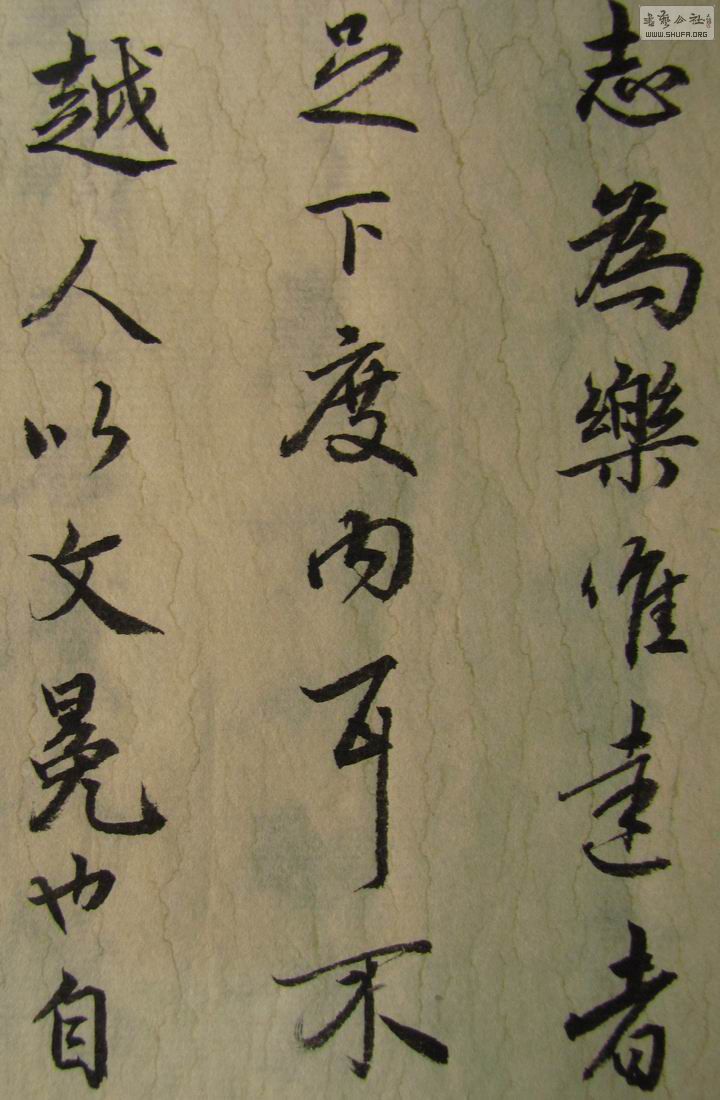 書藝公社
WWW.SHUFA.ORG
志為樂惟達者
足下度内耳不
越人以文冕也自